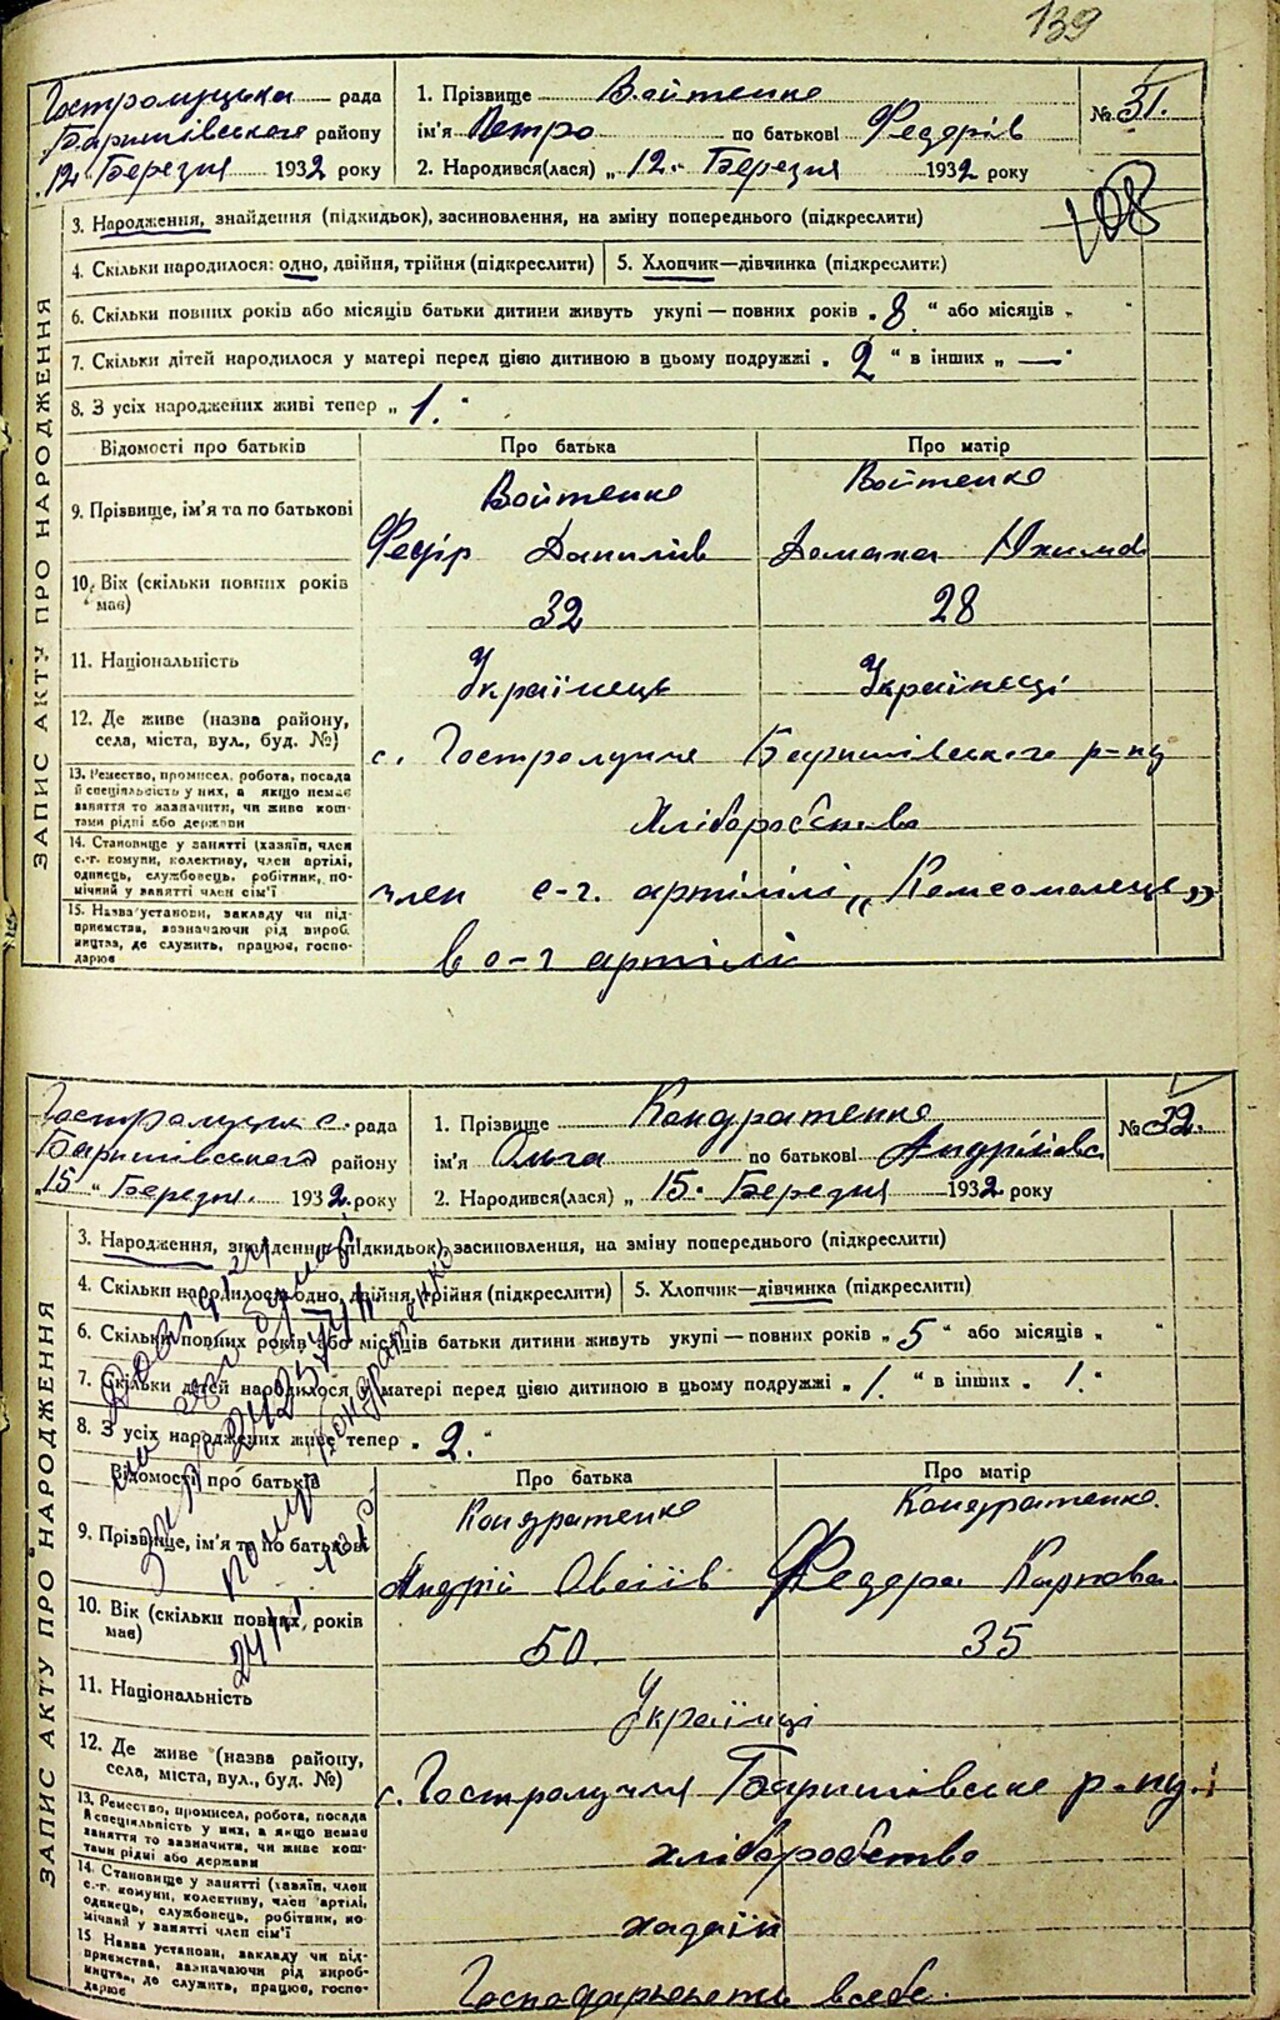 139
Гостролуцька рада
Баришівського району
"12" Березня 1932 року
1. Прізвище Войтенко
ім'я Петро по батькові Федорів
2. Народився(лася) „12" Березня 1932 року
№ 31.
108
ЗАПИС АКТУ ПРО НАРОДЖЕННЯ
3. Народження, знайдення (підкидьок), засиновлення, на зміну попереднього (підкреслити)
4. Скільки народилося: одно, двійня, трійня (підкреслити) 5. Хлопчик—дівчинка (підкреслити)
6. Скільки повних років або місяців батьки дитини живуть укупі — повних років „8" або місяців „ "
7. Скільки дітей народилося у матері перед цією дитиною в цьому подружжі „2" в інших „—"
8. З усіх народжених живі тепер „1."
Відомості про батьків Про батька Про матір
9. Прізвище, ім'я та по батькові Войтенко Войтенко
Федір Данилів Домаха Юхимов
10. Вік (скільки повних років має) 32 28
11. Національність Українець Українці
12. Де живе (назва району, села, міста, вул., буд. №) с. Гостролуччя Баришівського р-ну
13. Ремество, промисел, робота, посада й спеціяльність у них, а якщо немає заняття то зазначити, чи живе коштами рідні або держави Хліборобство
14. Становище у занятті (хазяїн, член с.-г. комуни, колективу, член артілі, одинець, службовець, робітник, помічний у занятті член сім'ї член с-г. артілілі „Комсомолець"
15. Назва установи, закладу чи підприємства, зазначаючи рід виробництва, де служить, працює, господарює в с-г артілі
Гостролуцьк с. рада
Баришівського району
"15" Березня. 1932 року
1. Прізвище Кондратенко
ім'я Ольга по батькові Андріївс
2. Народився(лася) „15" Березня 1932 року
№ 32.
ЗАПИС АКТУ ПРО НАРОДЖЕННЯ
3. Народження, знайдення (підкидьок), засиновлення, на зміну попереднього (підкреслити)
4. Скільки народилося: одно, двійня, трійня (підкреслити) 5. Хлопчик—дівчинка (підкреслити)
6. Скільки повних років або місяців батьки дитини живуть укупі — повних років „5" або місяців „ "
7. Скільки дітей народилося у матері перед цією дитиною в цьому подружжі „1." в інших „1."
8. З усіх народжених живе тепер „2."
Відомості про батьків Про батька Про матір
9. Прізвище, ім'я та по батькові Кондратенко Кондратенко.
Андрій Овсіїв Федора Карпова
10. Вік (скільки повних років має) 50. 35
11. Національність Українці
12. Де живе (назва району, села, міста, вул., буд. №) с. Гостролуччя Баришівське р-ну.
13. Ремество, промисел, робота, посада й спеціяльність у них, а якщо немає заняття то зазначити, чи живе коштами рідні або держави хліборобство
14. Становище у занятті (хазяїн, член с.-г. комуни, колективу, член артілі, одинець, службовець, робітник, помічний у занятті член сім'ї хадаїн
15. Назва установи, закладу чи підприємства, зазначаючи рід виробництва, де служить, працює, господарює Господарюють в себе.
Кондратенко